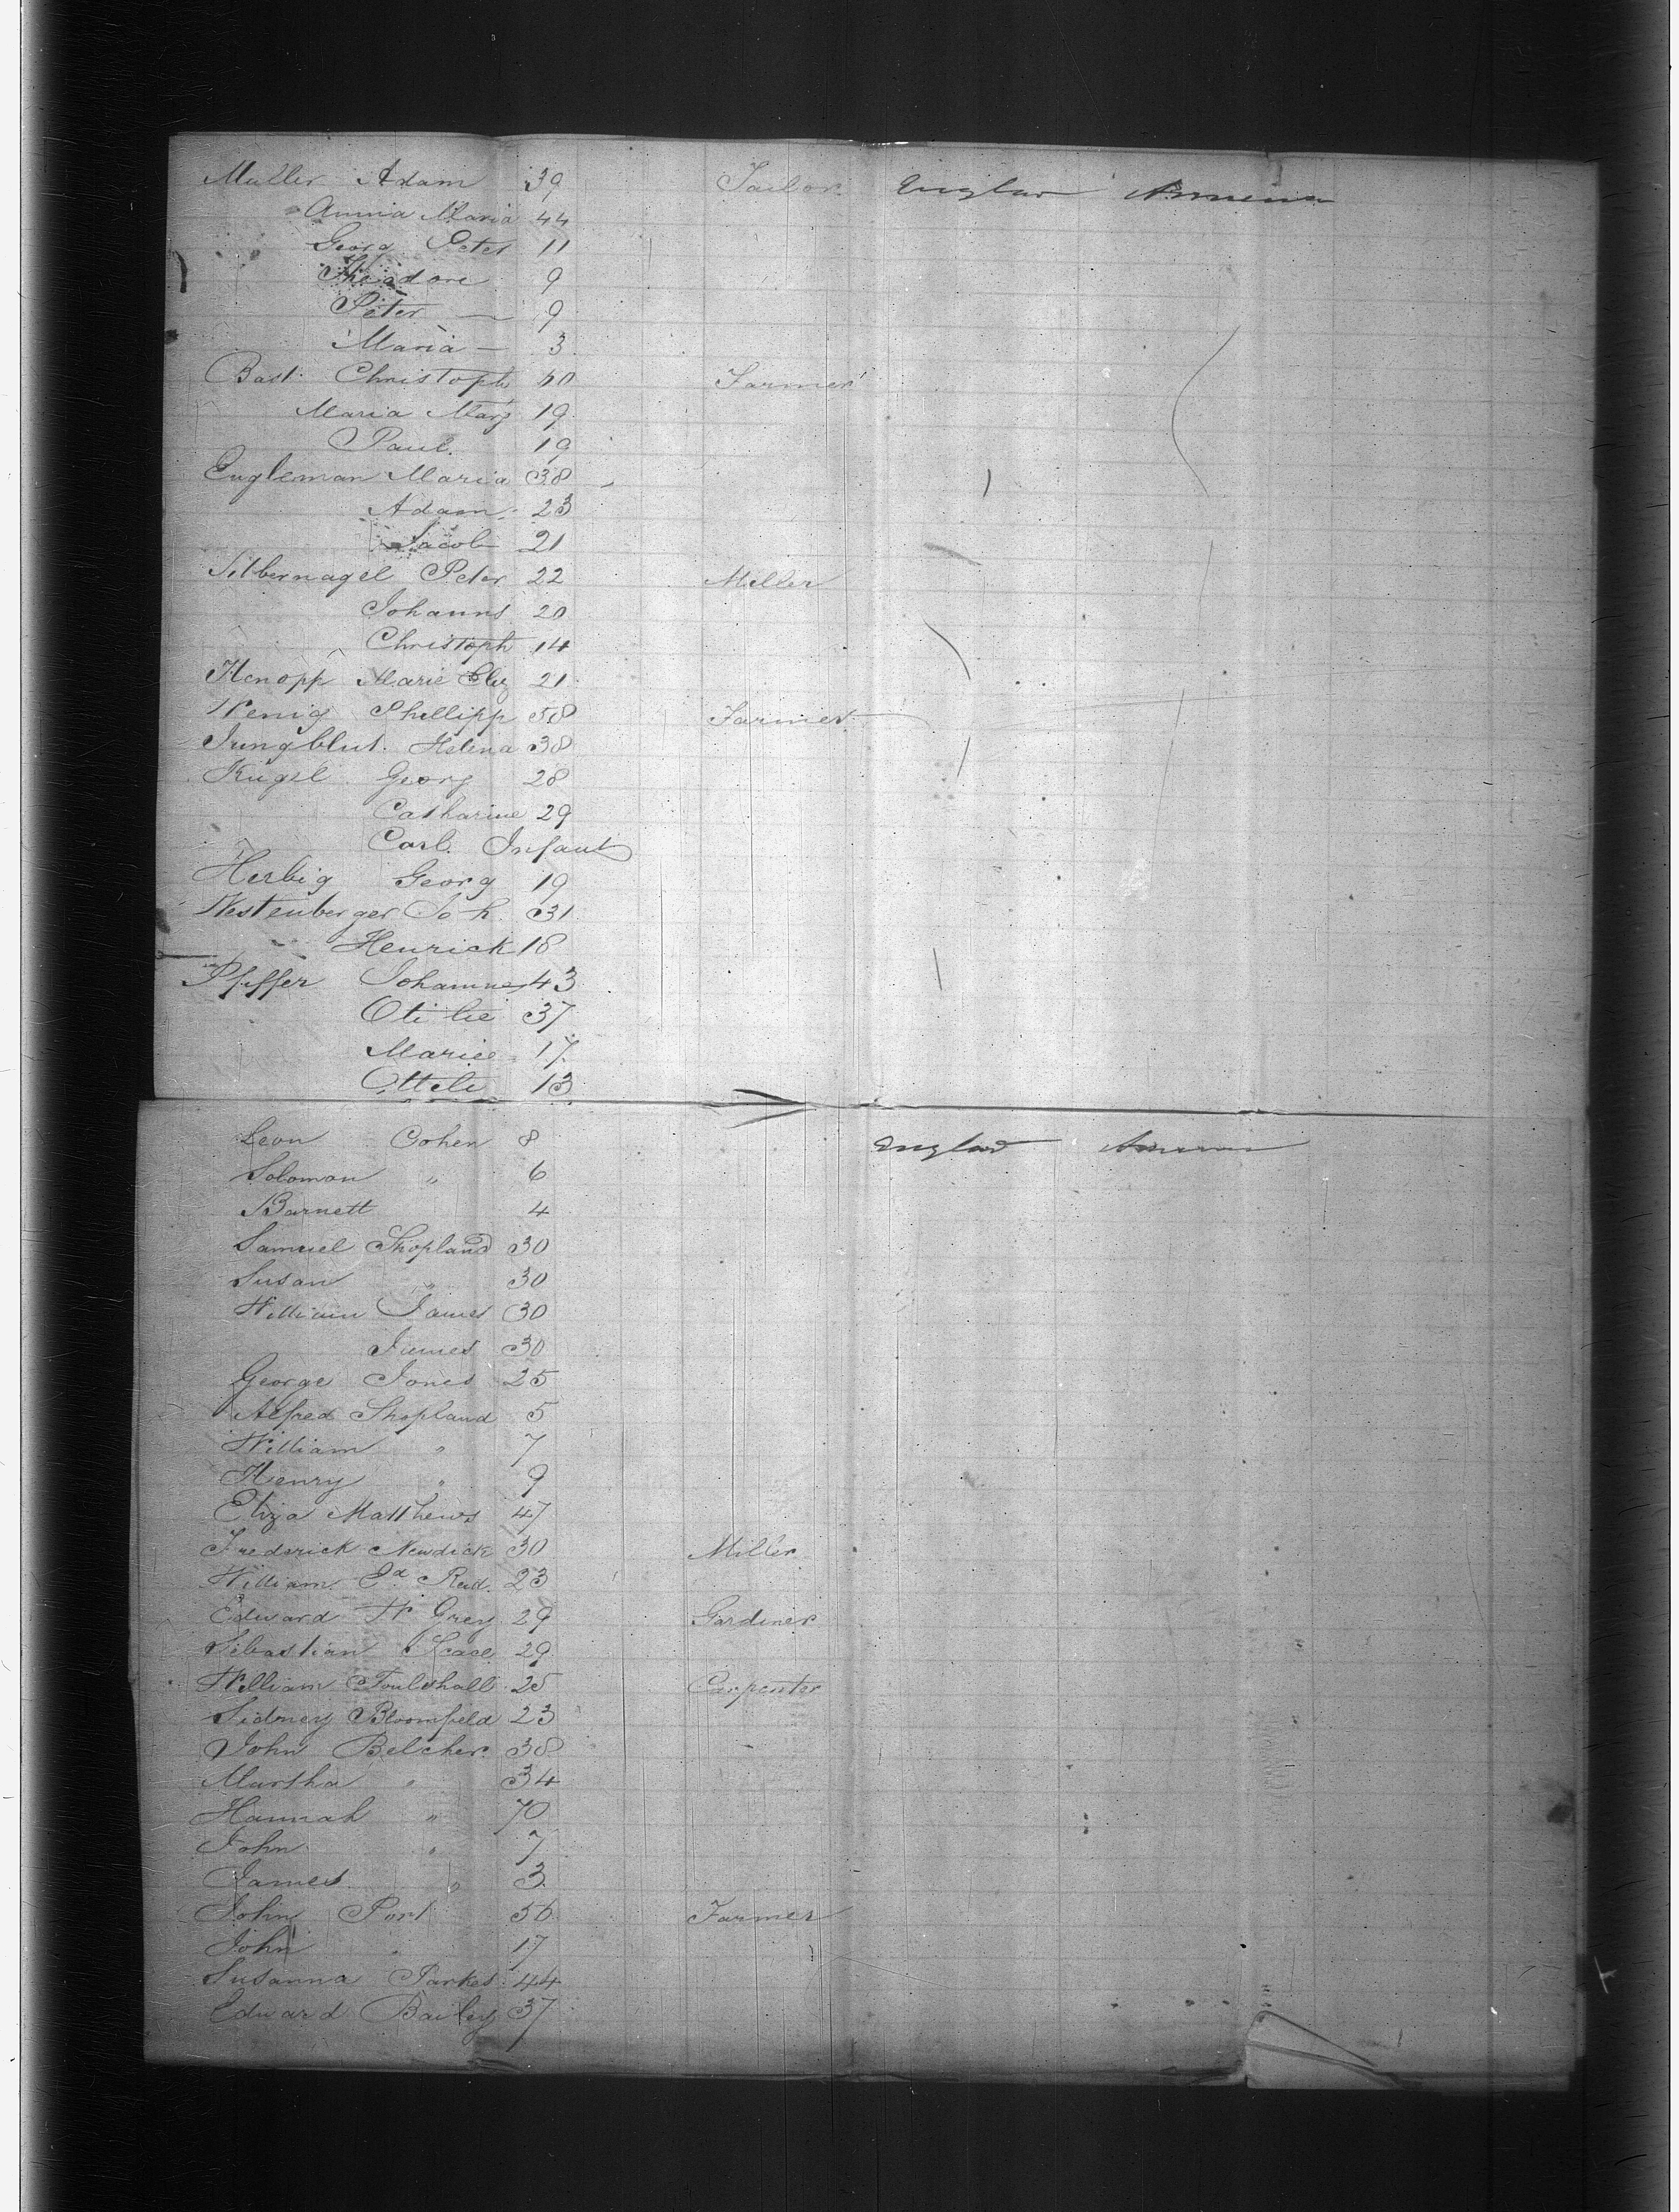 Muller Adam 39 Tailor England America
Annia Maria 44
Georg Peter 11
Theodore 9
Peter — 9
Maria — 3
Bast. Christoph 60 Farmer
Maria Marg 19
Paul. 19
Engleman Maria 38
Adam. 23
Jacob 21
Silbernagel Peter 22 Miller
Johanns 20
Christoph 14
Knopp Marie Eliz 21
Wenig Phillipp 58 Farmer
Jungblut. Helena 38
Kugel Georg 28
Catharine 29
Carl. Infant
Herbig Georg 19
Westenberger Joh. 31
Henrick 18
Pfiffer Johannes 43
Otilie 37
Mariee 17
Ottili 13
Leon Cohen 8 England America
Solomon " 6
Barnett 4
Samuel Shopland 30
Susan " 30
William James 30
James 30
George Jones 25
Alfred Shopland 5
William " 7
Henry " 9
Eliza Matthews 47
Frederick Newdick 30 Miller
William Ed Reid. 23
Edward W Grey 29 Gardiner
Sebastian 29
William Foulshall 25 Carpenter
Sidney Bloomfield 23
John Belcher 38
Martha " 34
Hannah " 70
John " 7
James " 3
John Port 56 Farmer
John " 17
Susanna Parkes 44
Edward Bailey 37